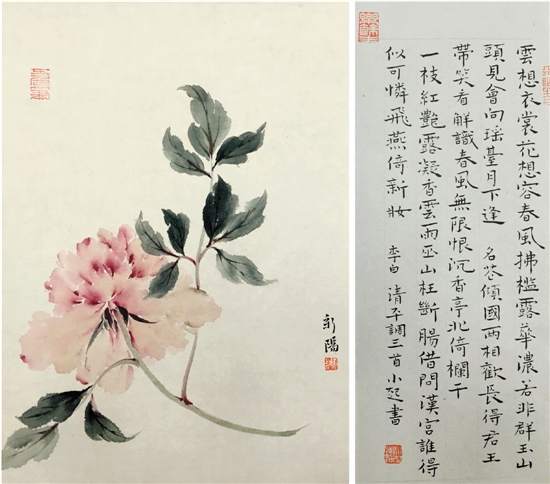 雲想衣裳花想容春風拂檻露華濃若非群玉山
頭見會向瑶臺月下逢 名花傾國兩相歡長得君王
帶笑看解識春風無限恨沉香亭北倚欄干
一枝紅艷露凝香雲雨巫山枉斷腸借問漢宮誰得
似可憐飛燕倚新妝 李白清平調三首小起書
新陽